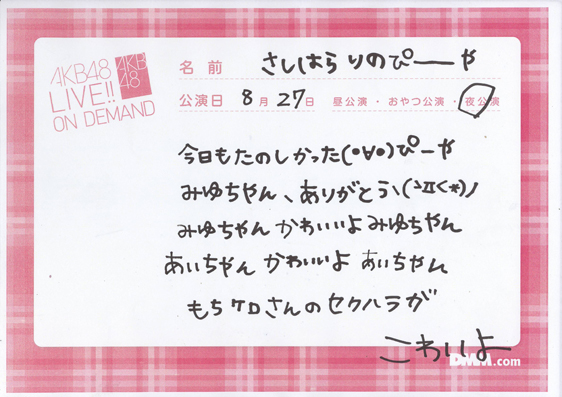 AKB48
LIVE!!
ON DEMAND
AKB
48
名前 さしはらりのぴーや
公演日 8月27日 昼公演・おやつ公演・夜公演
今日もたのしかった(•∀•)ぴーや
みゆちゃん、ありがとう\(׳ㅍ<*)ノ
みゆちゃんかわいいよみゆちゃん
あいちゃんかわいいよあいちゃん
もちケロさんのセクハラが
こわいよ
DMM.com